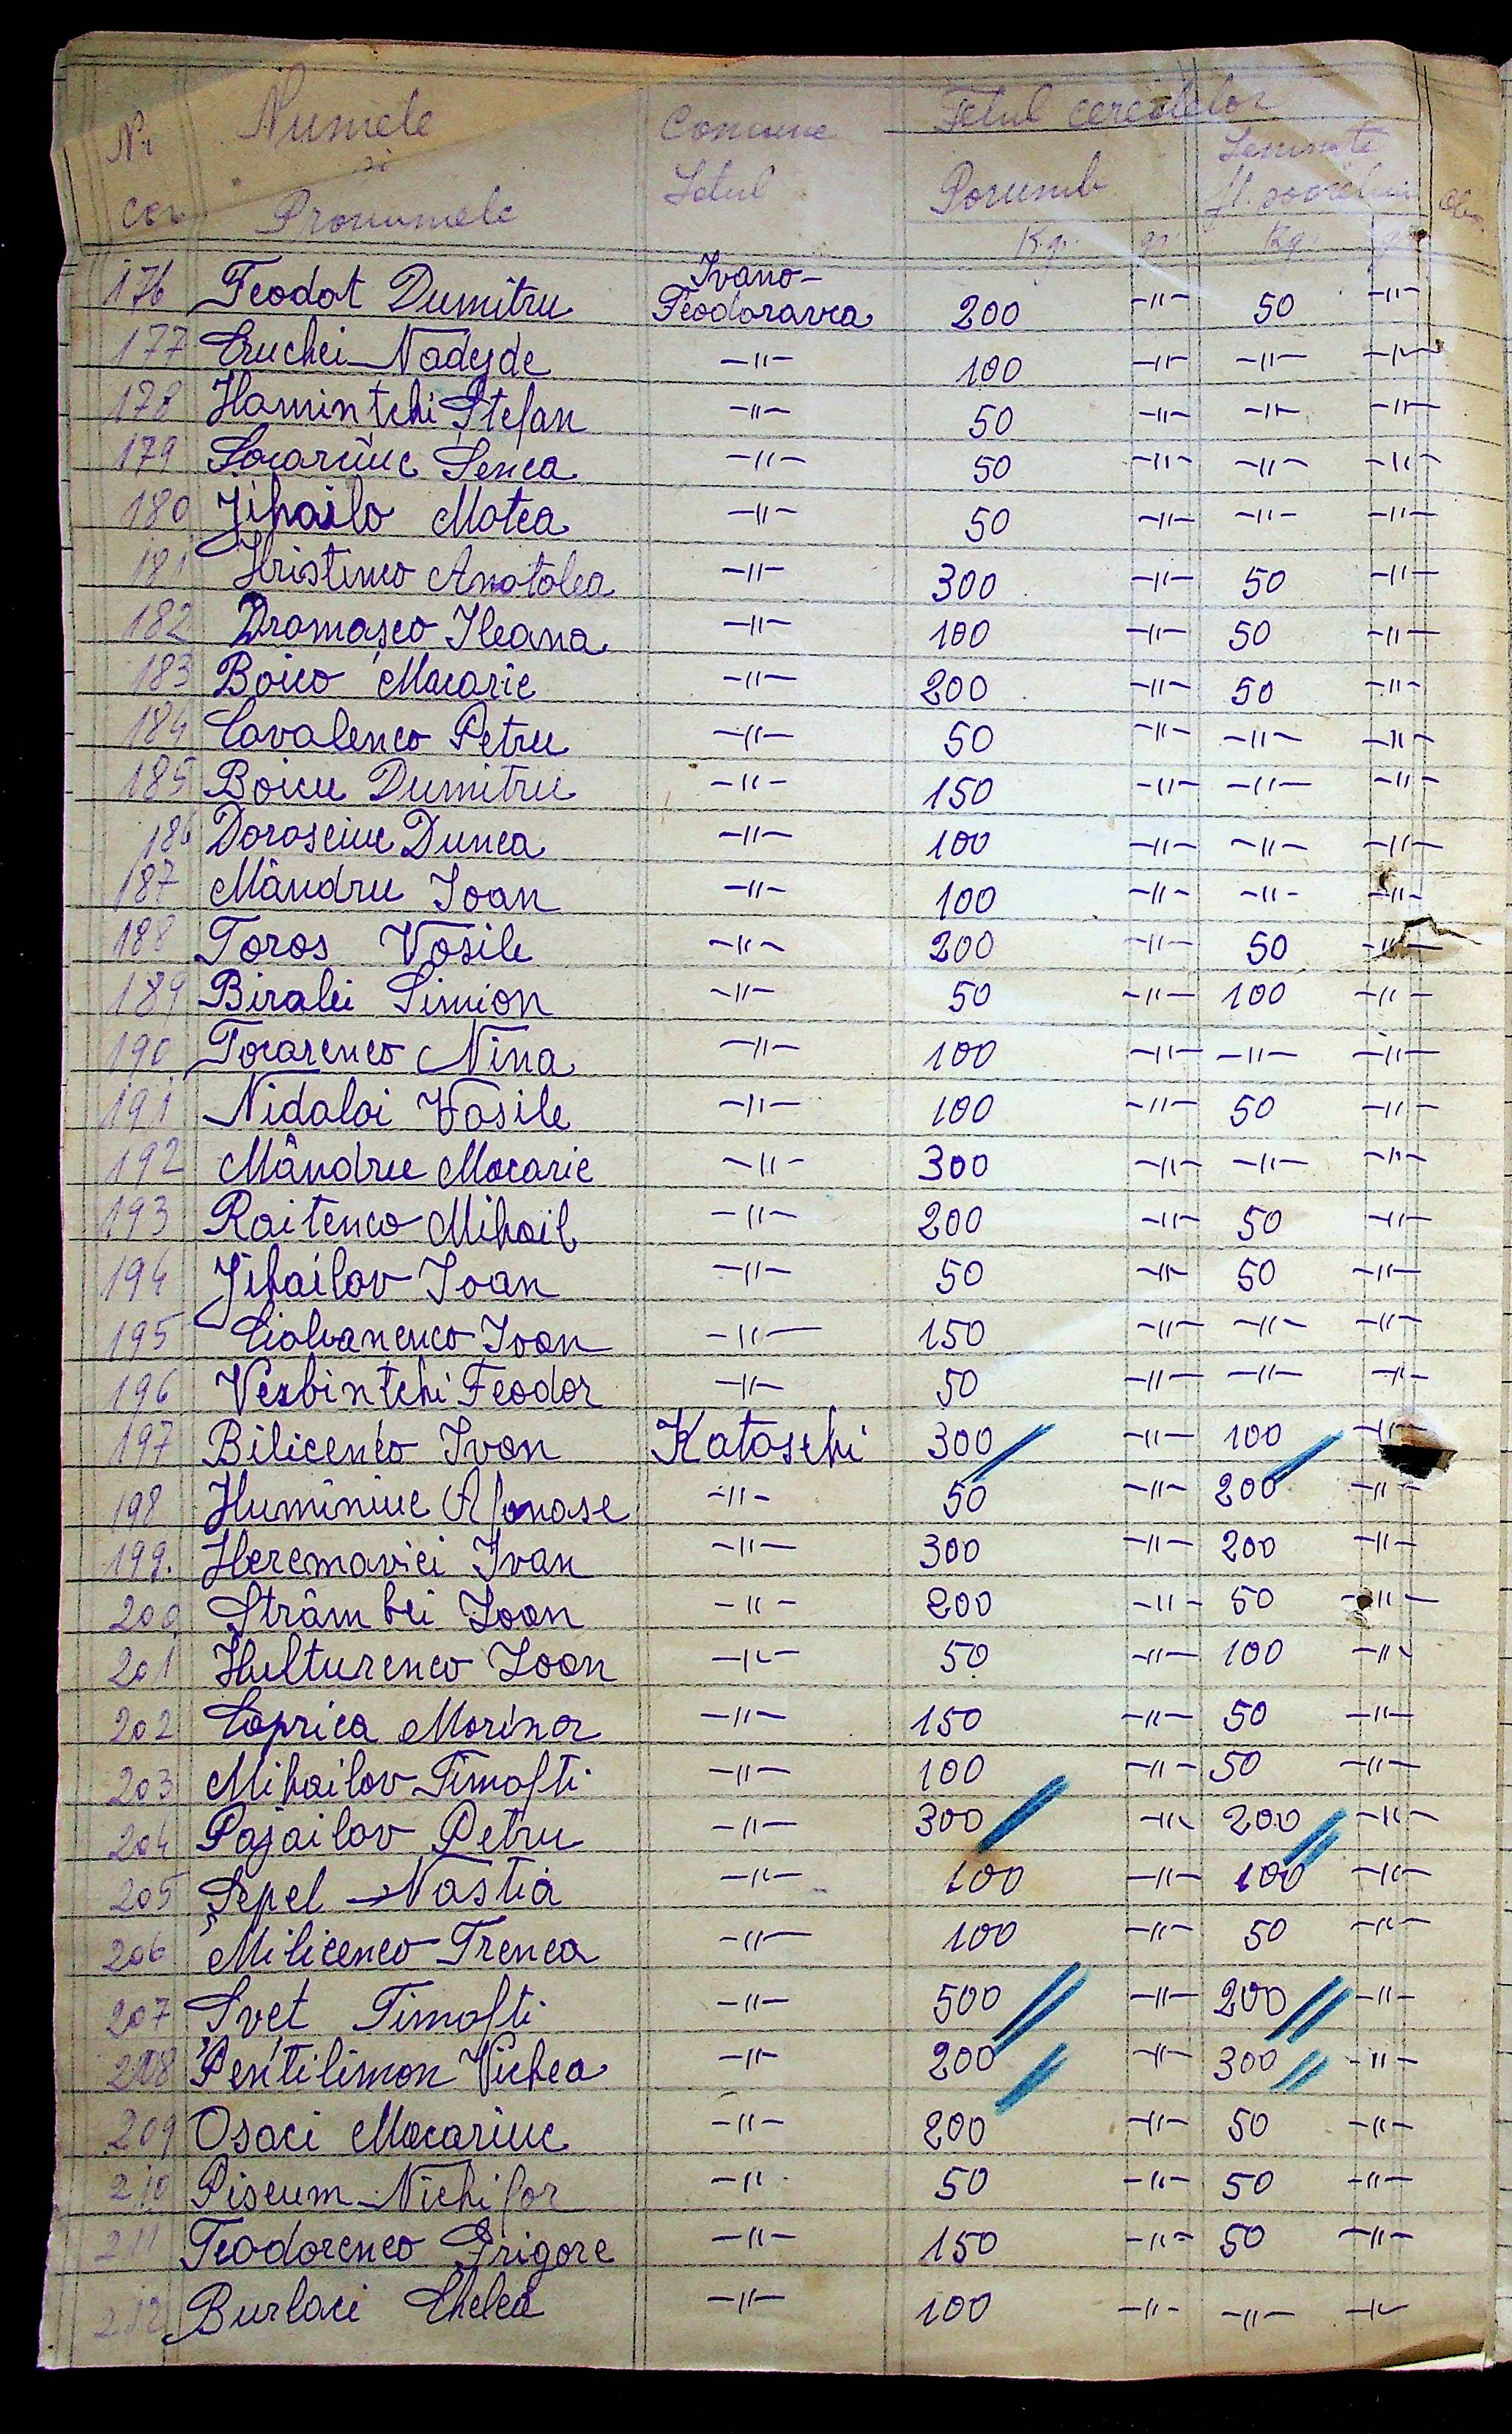 Nr. Numele Comuna Felul cerealelor
și Seminte
cor Pronumele Satul Porumb fl. soarelui Obs.
Kg. gr. Kg. gr.
Ivano-
176 Feodot Dumitru Feodoravca 200 -"- 50 -"-
177 Cruchei Nadejde -"- 100 -"- -"- -"-
178 Hamințchi Ștefan -"- 50 -"- -"- -"-
179 Socariuc Senca -"- 50 -"- -"- -"-
180 Jihailo Motea -"- 50 -"- -"- -"-
181 Hristinco Anatolea -"- 300 -"- 50 -"-
182 Dromașco Ileana -"- 100 -"- 50 -"-
183 Boico Macarie -"- 200 -"- 50 -"-
184 Covalenco Petru -"- 50 -"- -"- -"-
185 Boicu Dumitru -"- 150 -"- -"- -"-
186 Dorosciuc Dunca -"- 100 -"- -"- -"-
187 Mândru Ioan -"- 100 -"- -"- -"-
188 Toros Vasile -"- 200 -"- 50 -"-
189 Biralei Simion -"- 50 -"- 100 -"-
190 Tocarenco Nina -"- 100 -"- -"- -"-
191 Nidaloi Vasile -"- 100 -"- 50 -"-
192 Mândru Macarie -"- 300 -"- -"- -"-
193 Raitenco Mihail -"- 200 -"- 50 -"-
194 Jihailov Ioan -"- 50 -"- 50 -"-
195 Ciolvanenco Ioan -"- 150 -"- -"- -"-
196 Vesbințchi Feodor -"- 50 -"- -"- -"-
197 Bilicenco Ivan Kataschi 300 -"- 100 -"-
198 Huminiuc Afanase -"- 50 -"- 200 -"-
199. Heremavici Ivan -"- 300 -"- 200 -"-
200 Strâmbei Ioan -"- 200 -"- 50 -"-
201 Hulturenco Ioan -"- 50 -"- 100 -"-
202 Caprica Morinor -"- 150 -"- 50 -"-
203 Mihailov Timofti -"- 100 -"- 50 -"-
204 Pajailov Petru -"- 300 -"- 200 -"-
205 Șepel Nastia -"- 100 -"- 100 -"-
206 Milicenco Trenca -"- 100 -"- 50 -"-
207 Șveț Timofti -"- 500 -"- 200 -"-
208 Pentilimon Vichea -"- 200 -"- 300 -"-
209 Osaci Macariuc -"- 200 -"- 50 -"-
210 Piscum Nichifor -"- 50 -"- 50 -"-
211 Teodorenco Grigore -"- 150 -"- 50 -"-
212 Burlaci Chelea -"- 100 -"- -"- -"-